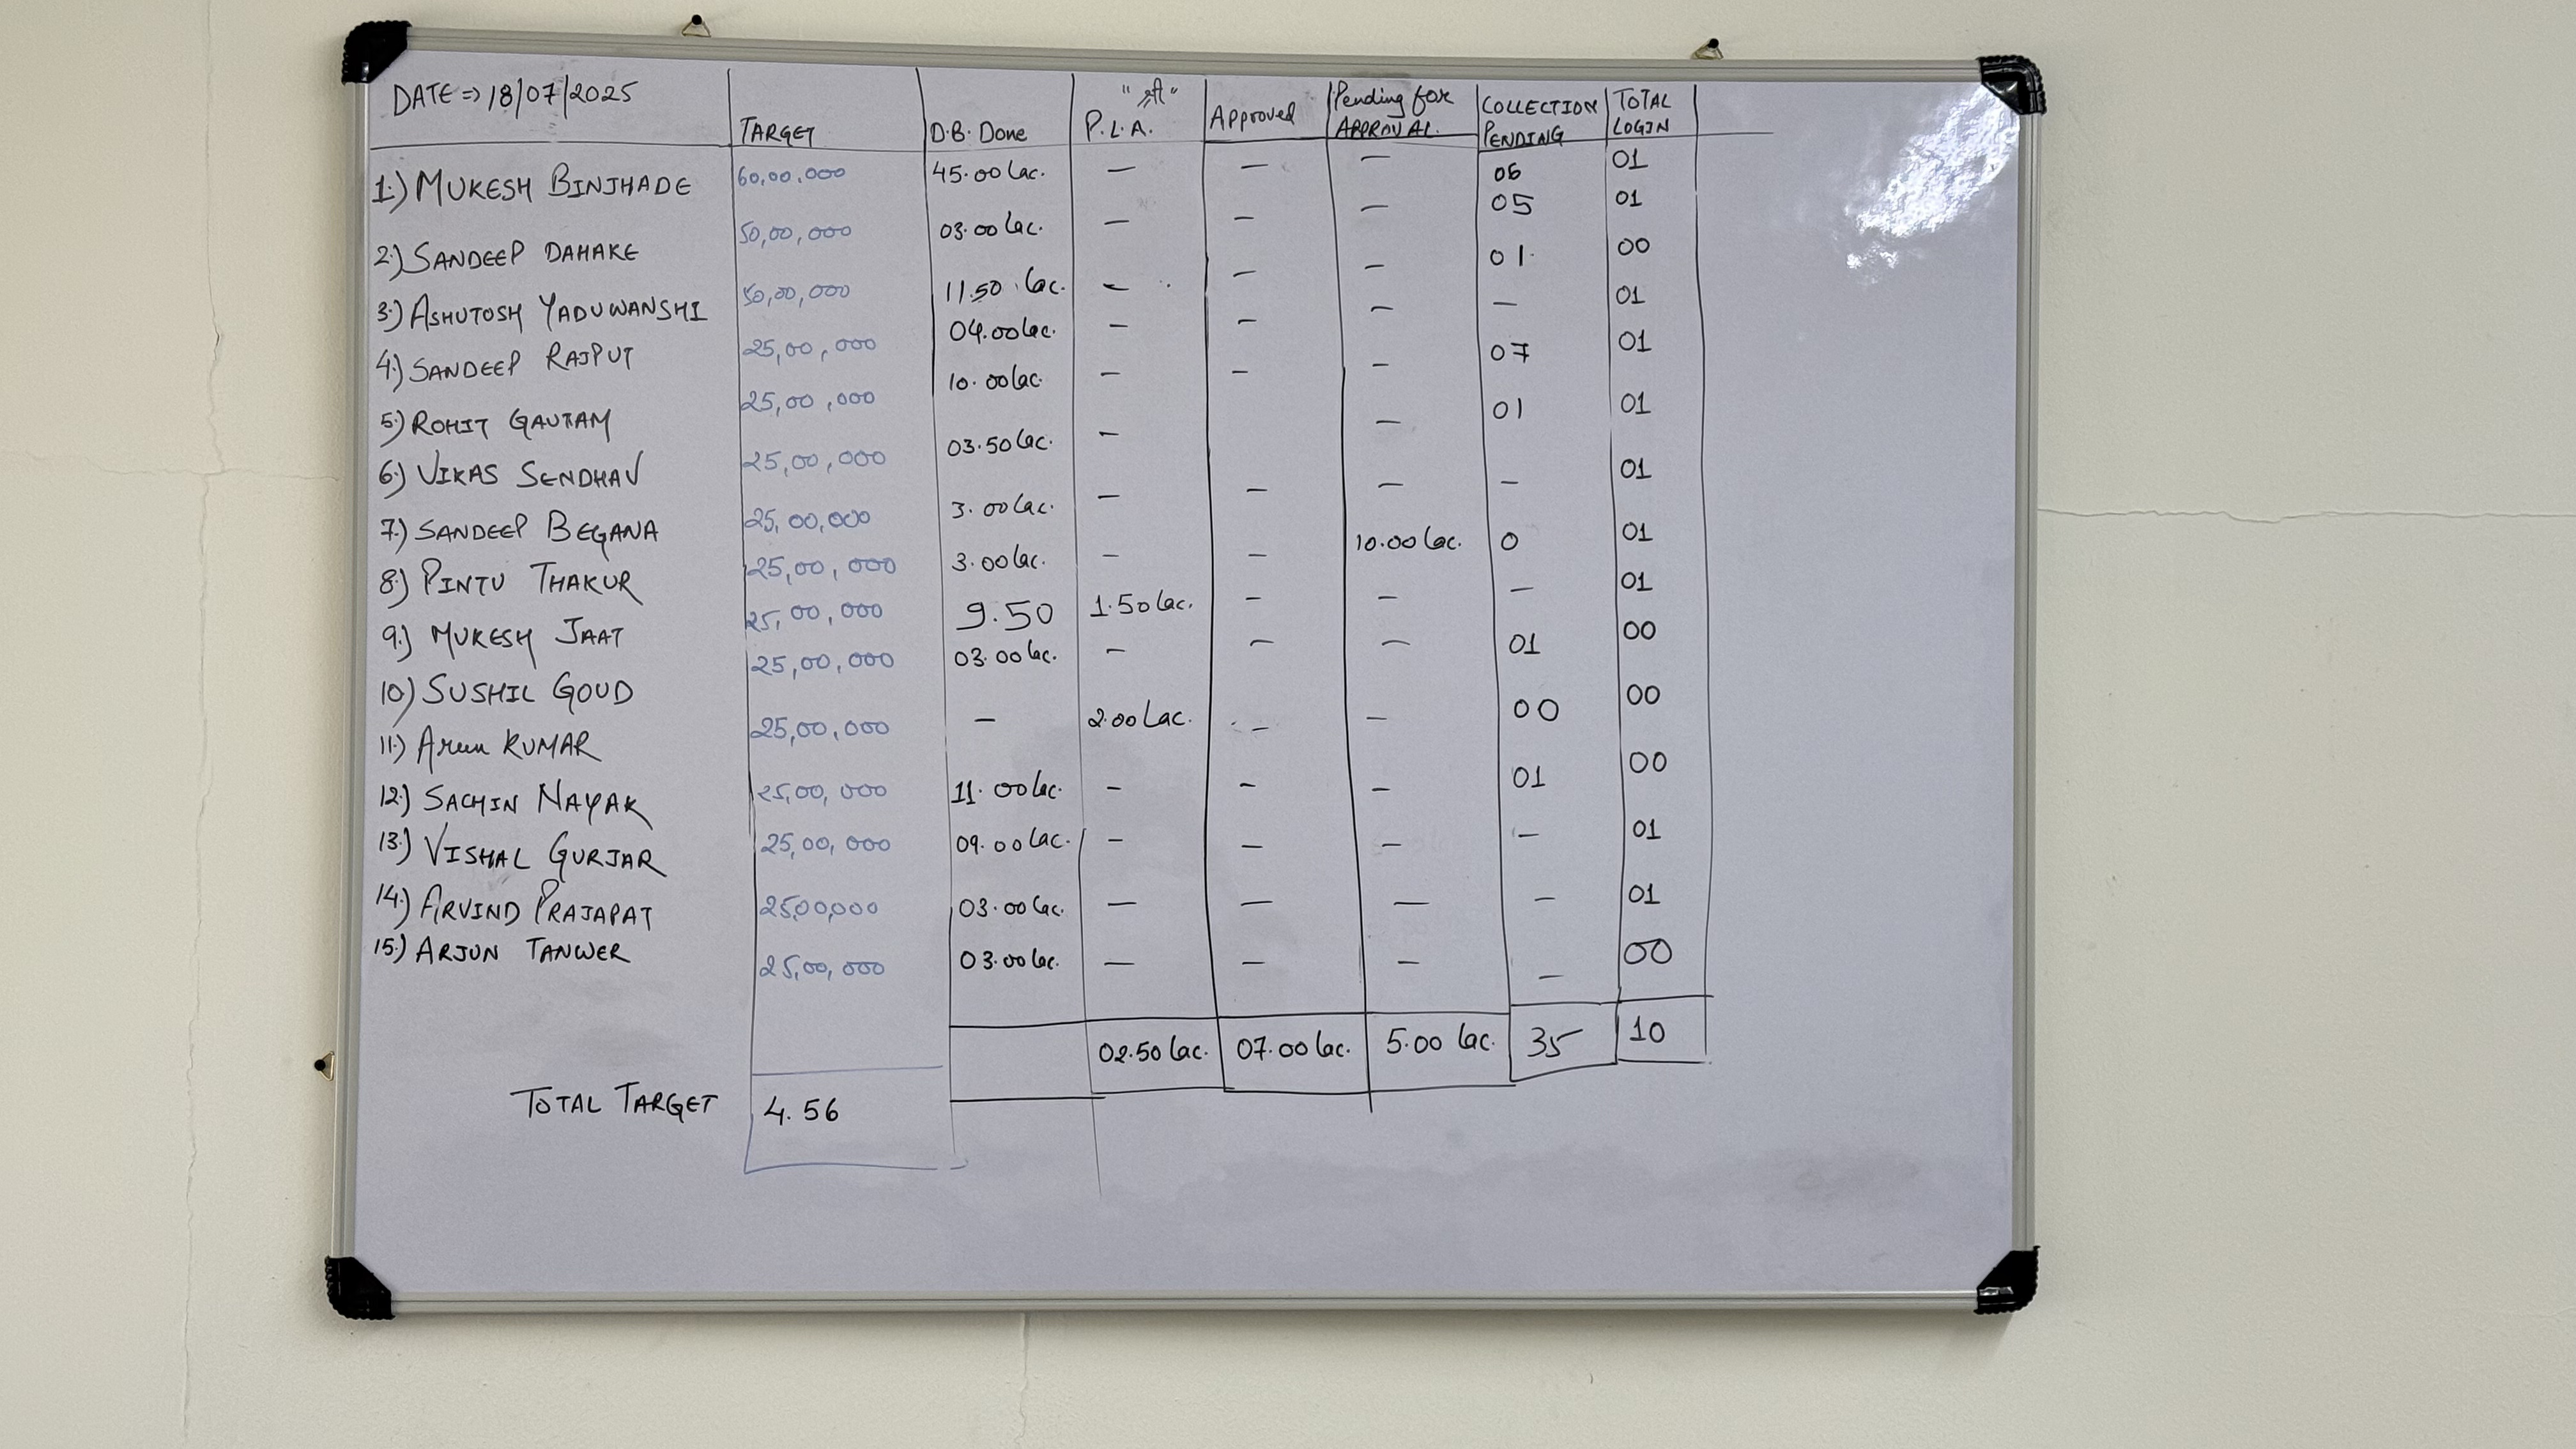 DATE => 18/07/2025 TARGET D.B. Done P.L.A. Approved Pending for APPROVAL. COLLECTION PENDING TOTAL LOGIN
1.) MUKESH BINJHADE 60,00,000 45.00 lac. — — — 06 01
2.) SANDEEP DAHAKE 50,00,000 03.00 lac. — — — 05 01
3.) ASHUTOSH YADUWANSHI 50,00,000 11.50 lac. — — — 01 00
4.) SANDEEP RAJPUT 25,00,000 04.00 lac. — — — — 01
5.) ROHIT GAUTAM 25,00,000 10.00 lac. — — — 07 01
6.) VIKAS SENDHAV 25,00,000 03.50 lac. — — 01 01
7.) SANDEEP BEGANA 25,00,000 3.00 lac. — — — — 01
8.) PINTU THAKUR 25,00,000 3.00 lac. — — 10.00 lac. 0 01
9.) MUKESH JAAT 25,00,000 9.50 1.50 lac. — — — 01
10) SUSHIL GOUD 25,00,000 03.00 lac. — — — 01 00
11.) Arun KUMAR 25,00,000 — 2.00 Lac. — — 00 00
12.) SACHIN NAYAK 25,00,000 11.00 lac. — — — 01 00
13.) VISHAL GURJAR 25,00,000 09.00 lac. — — — — 01
14.) ARVIND PRAJAPAT 2500,000 03.00 lac. — — — — 01
15.) ARJUN TANWER 25,00,000 03.00 lac. — — — — 00
02.50 lac. 07.00 lac. 5.00 lac. 35 10
TOTAL TARGET 4.56